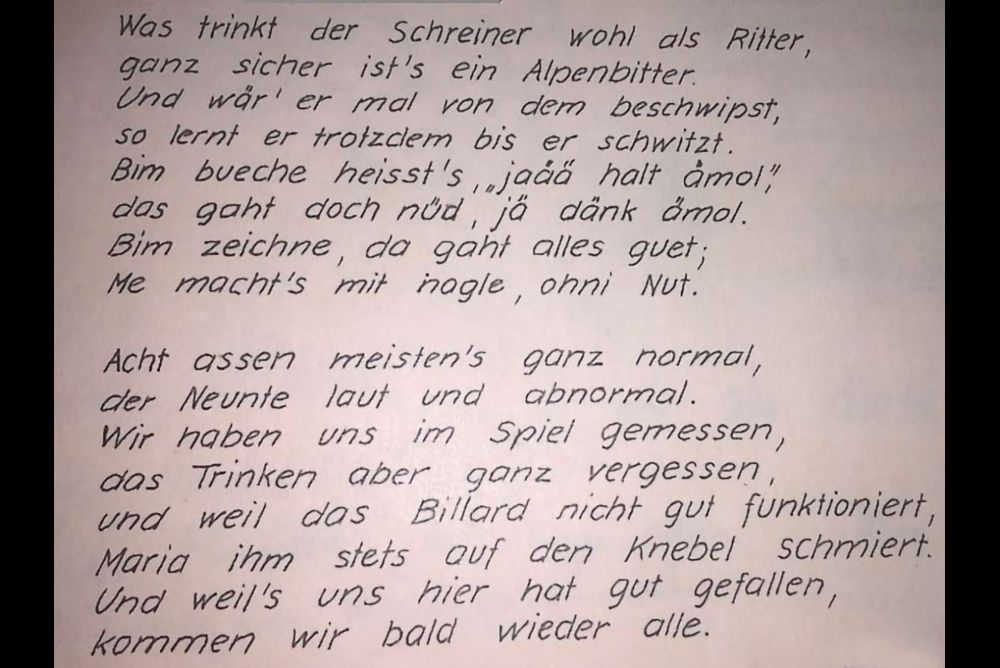 Was trinkt der Schreiner wohl als Ritter,
ganz sicher ist's ein Alpenbitter.
Und wär' er mal von dem beschwipst,
so lernt er trotzdem bis er schwitzt.
Bim bueche heisst's, „jaää halt ämol",
das gaht doch nüd, jä dänk ämol.
Bim zeichne, da gaht alles guet;
Me macht's mit nagle, ohni Nut.
Acht assen meisten's ganz normal,
der Neunte laut und abnormal.
Wir haben uns im Spiel gemessen,
das Trinken aber ganz vergessen,
und weil das Billard nicht gut funktioniert,
Maria ihm stets auf den Knebel schmiert.
Und weil's uns hier hat gut gefallen,
kommen wir bald wieder alle.